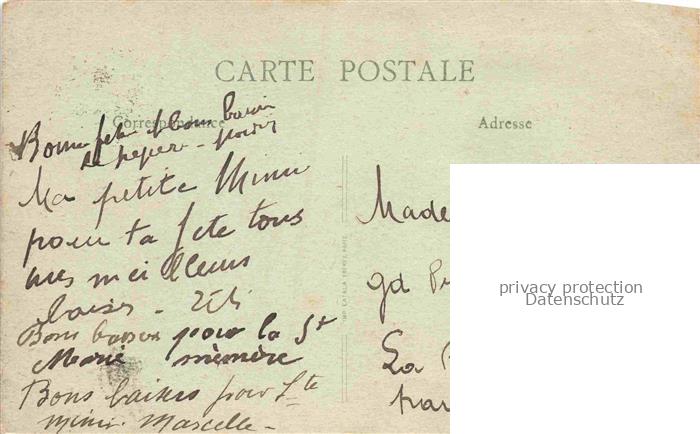 CARTE POSTALE
Correspondance
Adresse
Bonne fete & bon baiser
de pepere - 
Ma petite Mimi
pour ta fete tous
mes meilleurs
baisers - Titi
Bons baisers pour la St
Marie mèmère
Bons baisers pour Ste
Mimi. Marcelle -
IMP. CATALA FRERES PARIS
Made
gd
La
privacy protection
Datenschutz